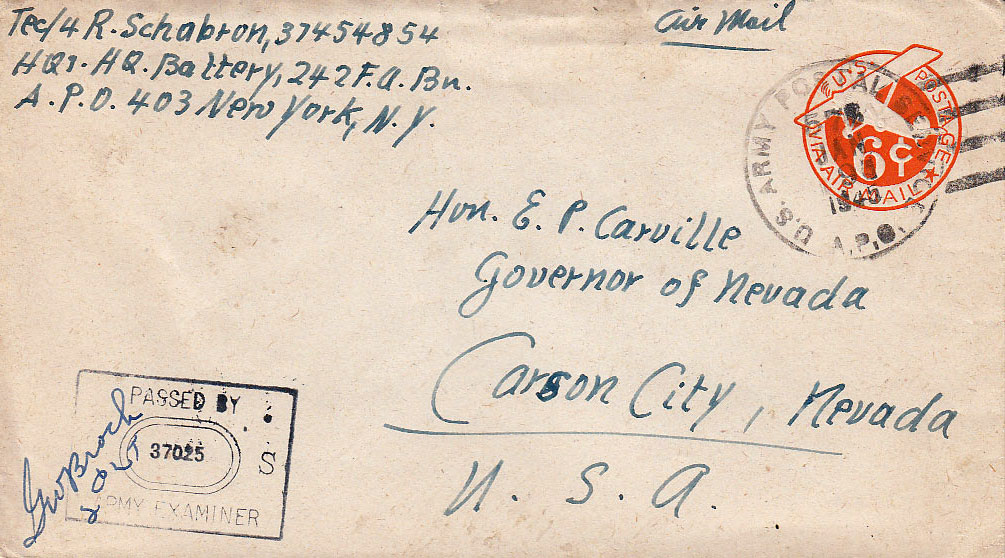 Tec/4 R. Schabron, 37454854
HQ1. HQ. Battery, 242 F.A. Bn.
A.P.O. 403 New York, N.Y.
Air Mail
U.S. POSTAGE
6¢
VIA AIR MAIL
U.S. ARMY POSTAL SERVICE
A.P.O.
Hon. E. P. Carville
Governor of Nevada
Carson City, Nevada
U. S. A.
PASSED BY
37025
S
ARMY EXAMINER